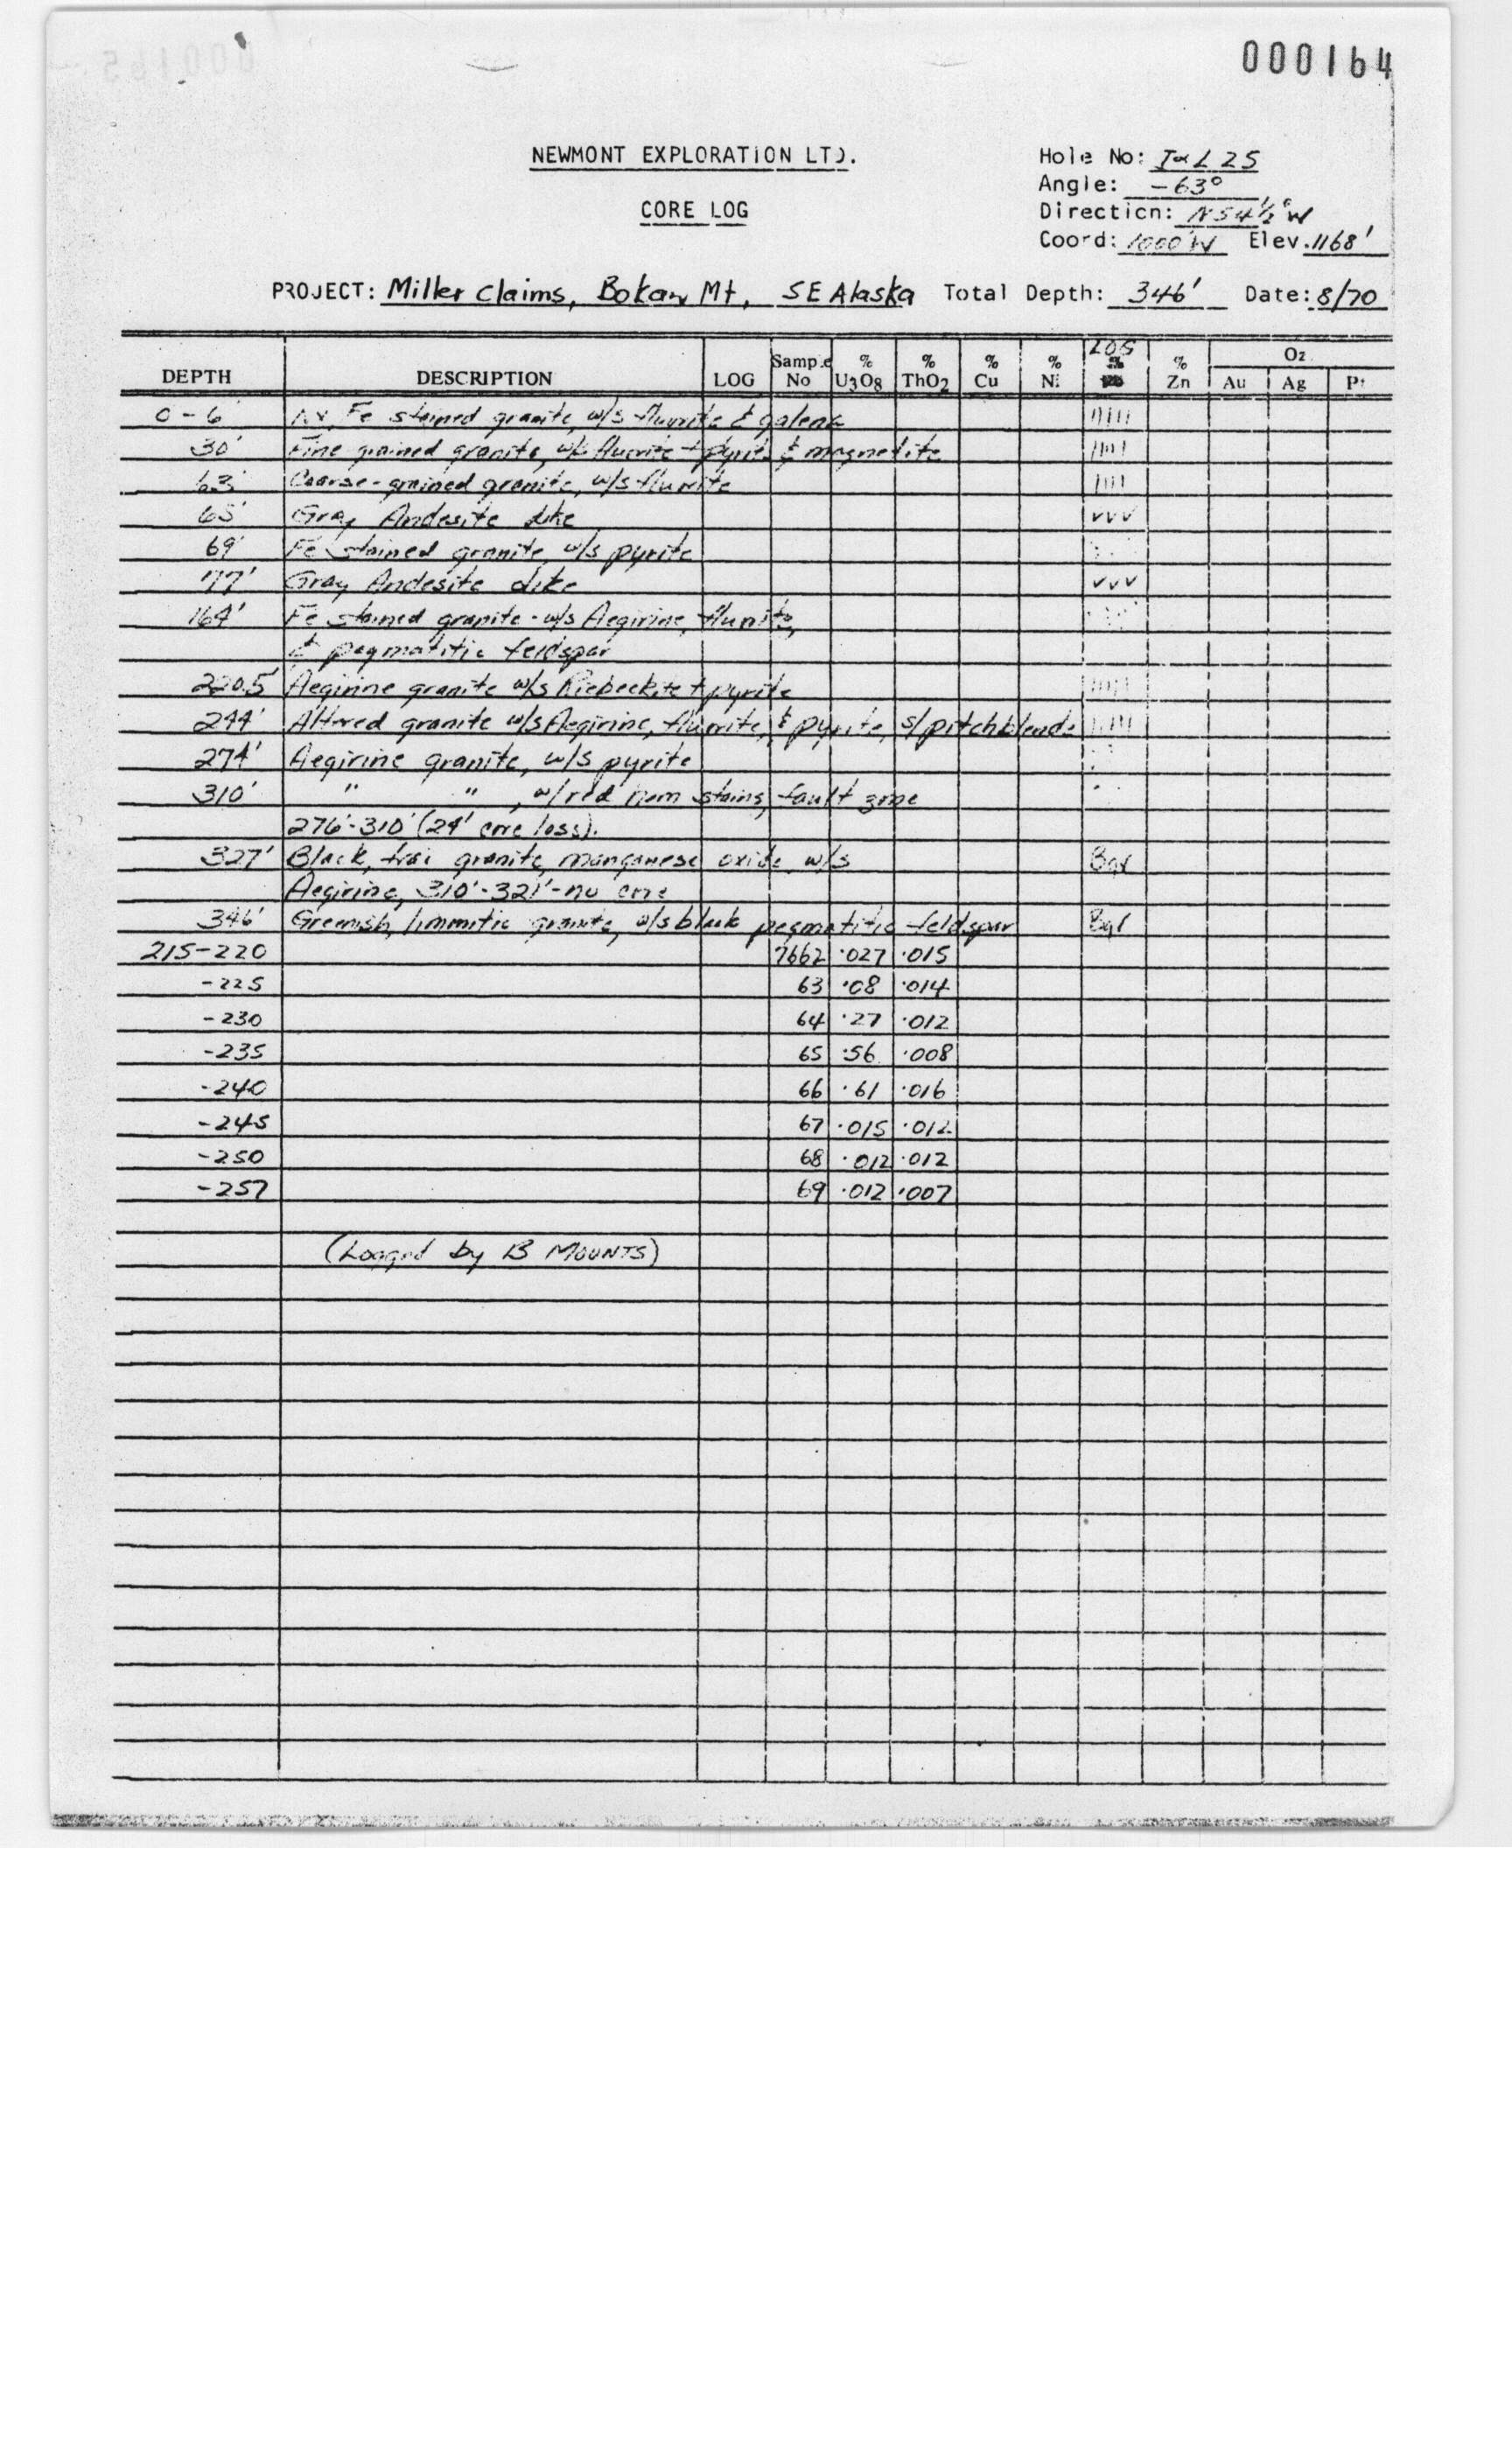 000164
NEWMONT EXPLORATION LTD.
CORE LOG
Hole No: I&L 25
Angle: -63°
Direction: N54½°W
Coord: 1000'W Elev. 1168'
PROJECT: Miller Claims, Bokan Mt, SE Alaska Total Depth: 346' Date: 8/70
DEPTH DESCRIPTION LOG Sample No % U3O8 % ThO2 % Cu % Ni LOG % % Zn Oz Au Ag Pt
0-6' Fe stained granite, w/s fluorite & galena
30' Fine grained granite, w/s fluorite + pyrite & magnetite
63' Coarse-grained granite, w/s fluorite
65' Gray Andesite dike vvv
69' Fe stained granite, w/s pyrite
77' Gray Andesite dike vvv
164' Fe stained granite - w/s Aegirine, fluorite,
& pegmatitic feldspar
220.5' Aegirine granite w/s Riebeckite + pyrite
244' Altered granite w/s Aegirine, fluorite, & pyrite, s/pitchblende
274' Aegirine granite, w/s pyrite
310' " " , w/red hem stains, fault zone
276'-310' (24' core loss).
327' Black, granite, manganese oxide, w/s
Aegirine, 310'-321'-no core
346' Greenish, limonitic granite, w/s black pegmatitic feldspar
215-220 7662 .027 .015
-225 63 .08 .014
-230 64 .27 .012
-235 65 .56 .008
-240 66 .61 .016
-245 67 .015 .012
-250 68 .012 .012
-257 69 .012 .007
(Logged by B MOUNTS)